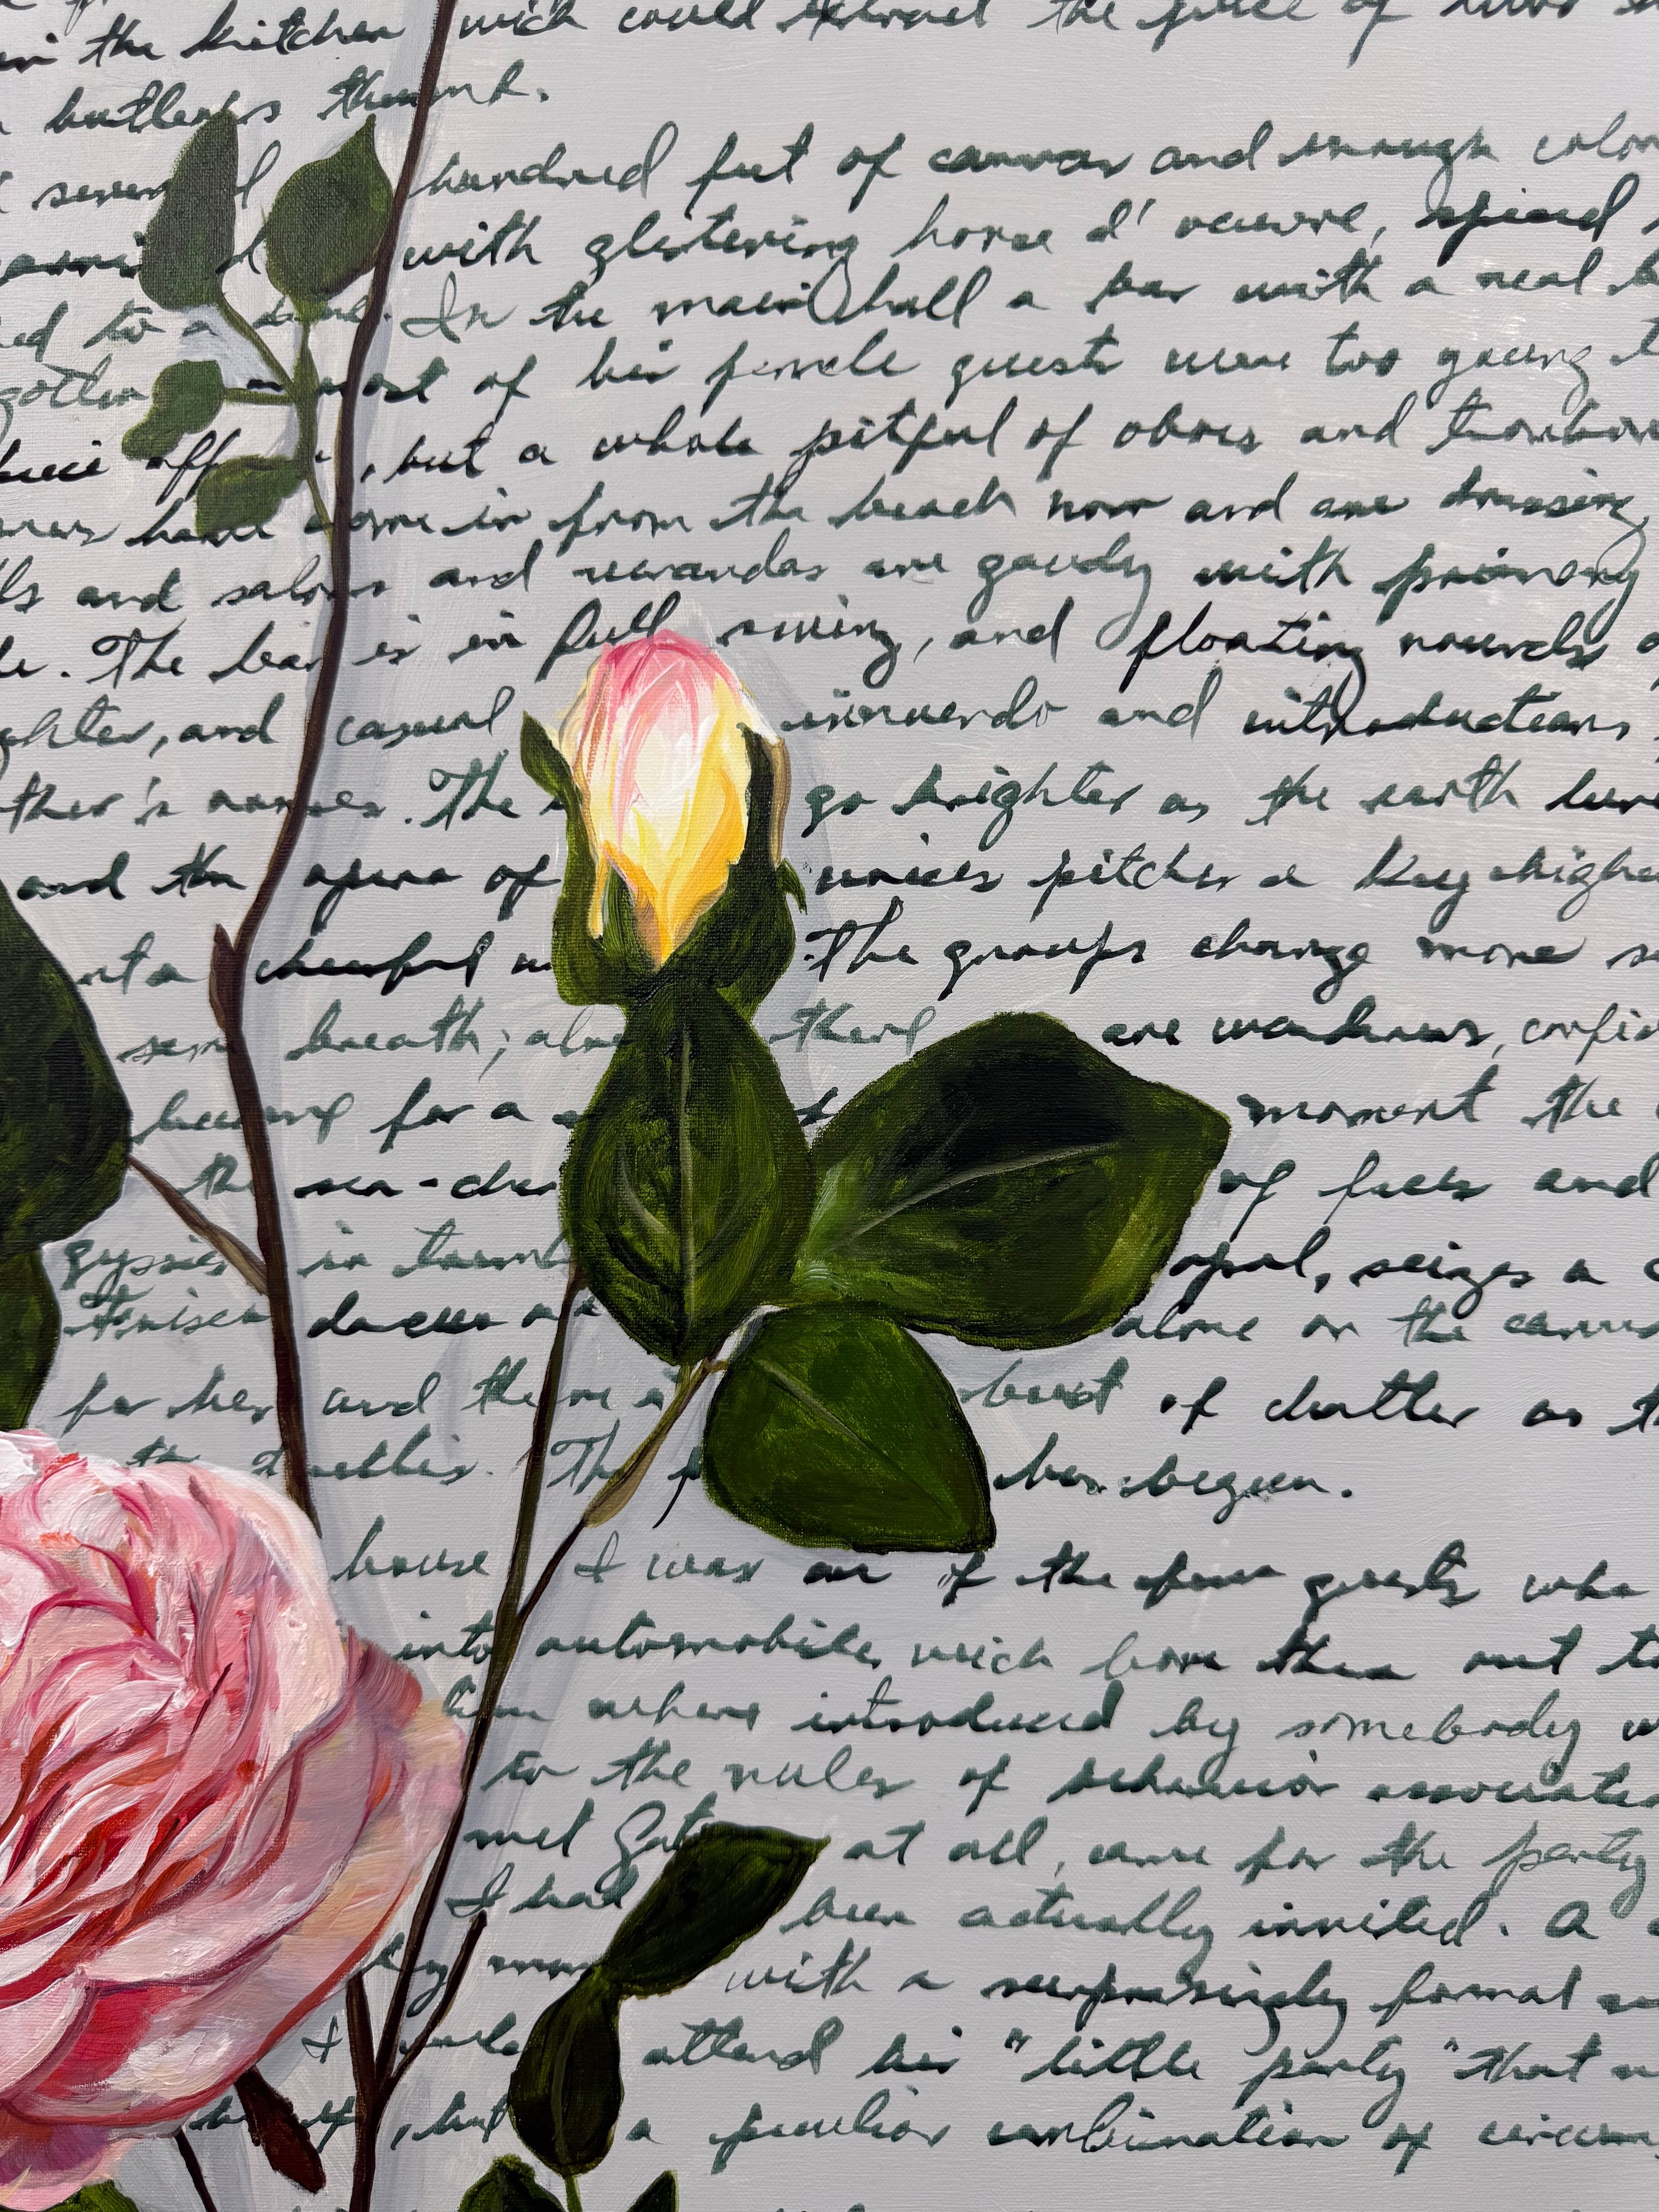 in the kitchen wich could extract the juice of
butler's thumb.
several hundred feet of canvas and enough color
with glistering horse d'oeuvre, spiced
ed to a In the main hall a bar with a real b
gotten most of his female guests were too young t
, but a whole pitful of oboes and trombon
have come in from the beach now and are dressing
ls and salons and verandas are gaudy with primary
le. The bar is in full swing, and floating rounds o
ghter, and casual innuendo and introductions
ther's names. The go brighter as the earth lur
and the opera of voices pitches a key highe
cheerful The groups change more s
same breath; alre there are wanderers, confid
for a moment the
the sea-cha of faces and
gypsies in tremb opal, seizes a c
down alone on the canva
for her and there i burst of chatter as t
the follies. The p has begun.
house I was one of the few guests who
into automobiles wich bore them out to
where introduced by somebody w
to the rules of behavior associate
met Gats at all, came for the party
I had been actually invited. A
with a surprisingly formal
I attend his "little party" that n
, but a peculiar combination of circum